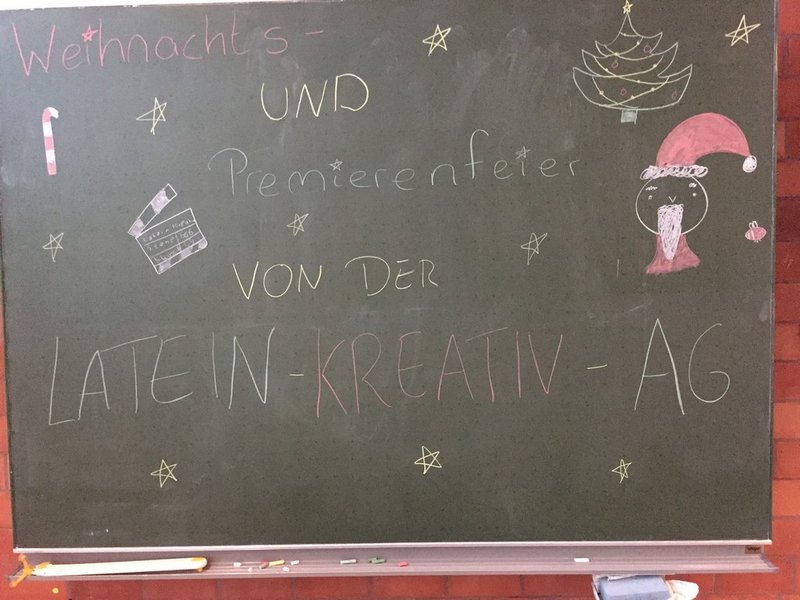 Weihnachts-
UND
Premierenfeier
VON DER
LATEIN-KREATIV-AG